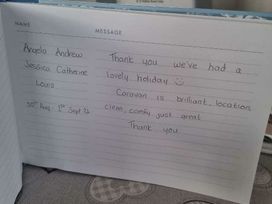 NAME MESSAGE
Angela Andrew Thank you we've had a
Jessica Catherine lovely holiday ☺
Louis Caravan is brilliant, location,
30th Aug - 1st Sept clean, comfy just great
Thank you